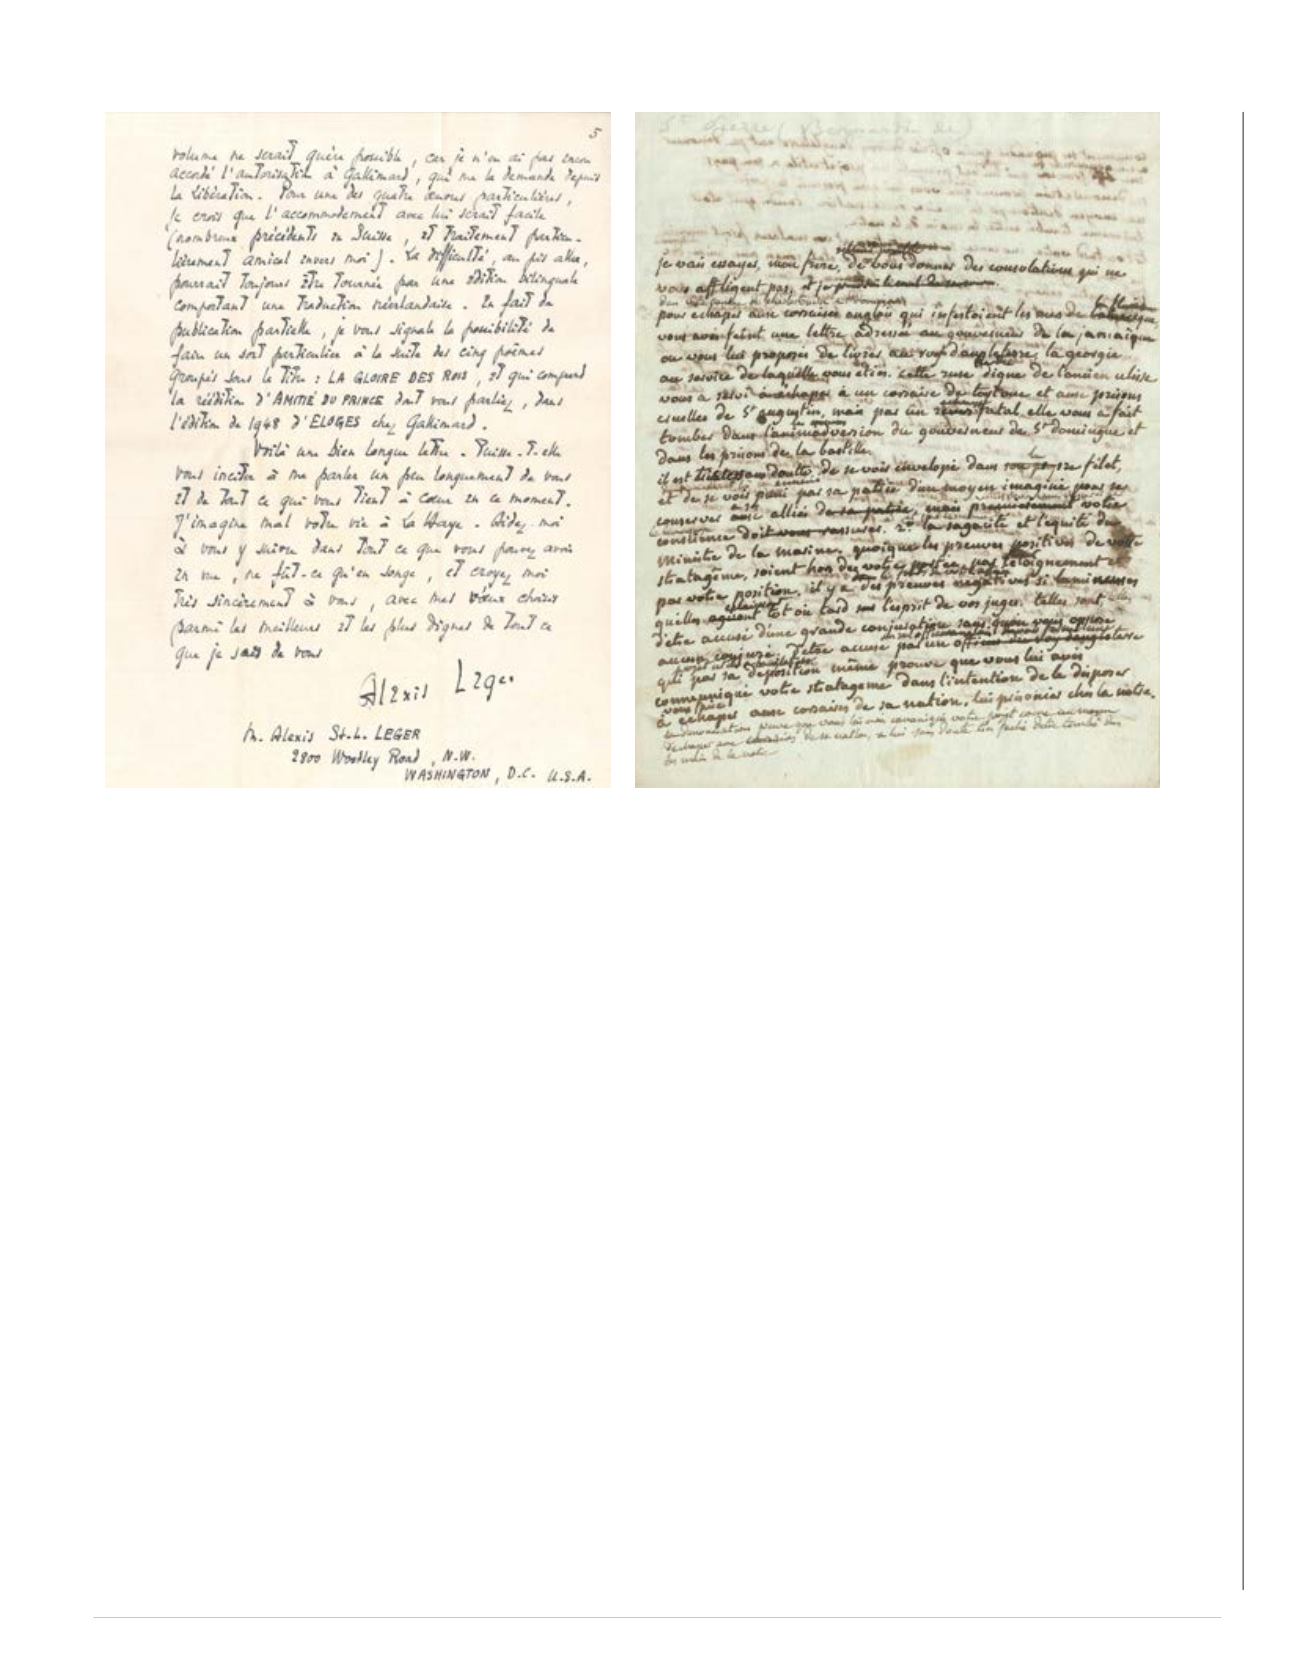 5
volume ne serait guère possible, car je n'en ai pas encore
accordé l'autorisation à Gallimard, qui me la demande depuis
la Libération. Pour une des quatre œuvres particulières,
je crois que l'accommodement avec lui serait facile
(nombreux précédents en Suisse, et traitement particu-
lièrement amical envers moi). La difficulté, au pis aller,
pourrait toujours être tournée par une édition bilingue
comportant une traduction néerlandaise. En fait de
publication partielle, je vous signale la possibilité de
faire un sort particulier à la suite des cinq poèmes
groupés sous le titre : LA GLOIRE DES ROIS, et qui comprend
la réédition d'AMITIÉ DU PRINCE dont vous parliez, dans
l'édition de 1948 d'ELOGES chez Gallimard.
Voilà une bien longue lettre. Puisse-t-elle
vous inciter à me parler un peu longuement de vous
et de tout ce qui vous tient à cœur en ce moment.
J'imagine mal votre vie à La Haye. Aidez-moi
à vous y suivre dans tout ce que vous pouvez avoir
en vue, ne fût-ce qu'en songe, et croyez moi
très sincèrement à vous, avec mes vœux choisis
parmi les meilleurs et les plus dignes de tout ce
que je sais de vous
Alexis Leger
M. Alexis St.-L. LEGER
2800 Woodley Road, N.W.
WASHINGTON, D.C. U.S.A.
St Pierre (Bernardin de)
je vais essayer, mon frere, de vous donner des consolations qui ne
vous affligent pas, et je
pour echaper aux corsaires anglois qui infestoient les mers de
vous avés feint une lettre adressée au gouverneur de la jamaique
ou vous lui proposés de livrer au roy d'angleterre la georgie
au service de laquelle vous etiés. cette ruse digne de l'ancien ulisse
vous a servi a echaper à un corsaire de et aux prisons
cruelles de St augustin, mais par un revers fatal elle vous a fait
tomber dans l'animadversion du gouverneur de St domingue et
dans les prisons de la bastille.
il est sans doutte de se voir envelopé dans son propre filet,
et de se voir puni par sa patrie d'un moyen imaginé pour se
conserver aux alliés de sa patrie, mais premierement votre
conscience doit vous rassurer. 2° la sagacité et l'equité du
Ministre de la marine, quoique les preuves positives de votre
stratagème, soient hors de votre portée par l'eloignement et
par votre position, il y a des preuves negatives si lumineuses
quelles tot ou tard sur l'esprit de vos juges. telles sont
d'etre accusé d'une grande conjuration sans qu'on vous oppose
aucun conjuré. d'etre accusé par un officier du roy d'angleterre
qui par sa deposition même prouve que vous lui avés
communiqué votre stratageme dans l'intention de le disposer
à echaper aux corsaires de sa nation, lui prisonier chez la notre.